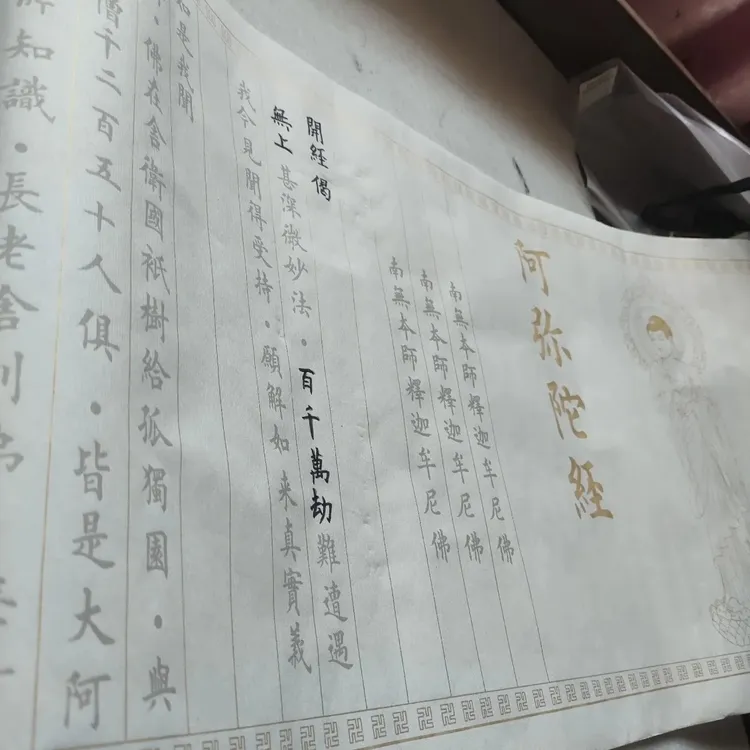 阿弥陀經
南無本師釋迦牟尼佛
南無本師釋迦牟尼佛
南無本師釋迦牟尼佛
開經偈
無上甚深微妙法。百千萬劫難遭遇
我今見聞得受持。願解如來真實義
如是我聞
佛在舍衛國祇樹給孤獨園。與
僧千二百五十人俱。皆是大阿
所知識。長老舍利弗